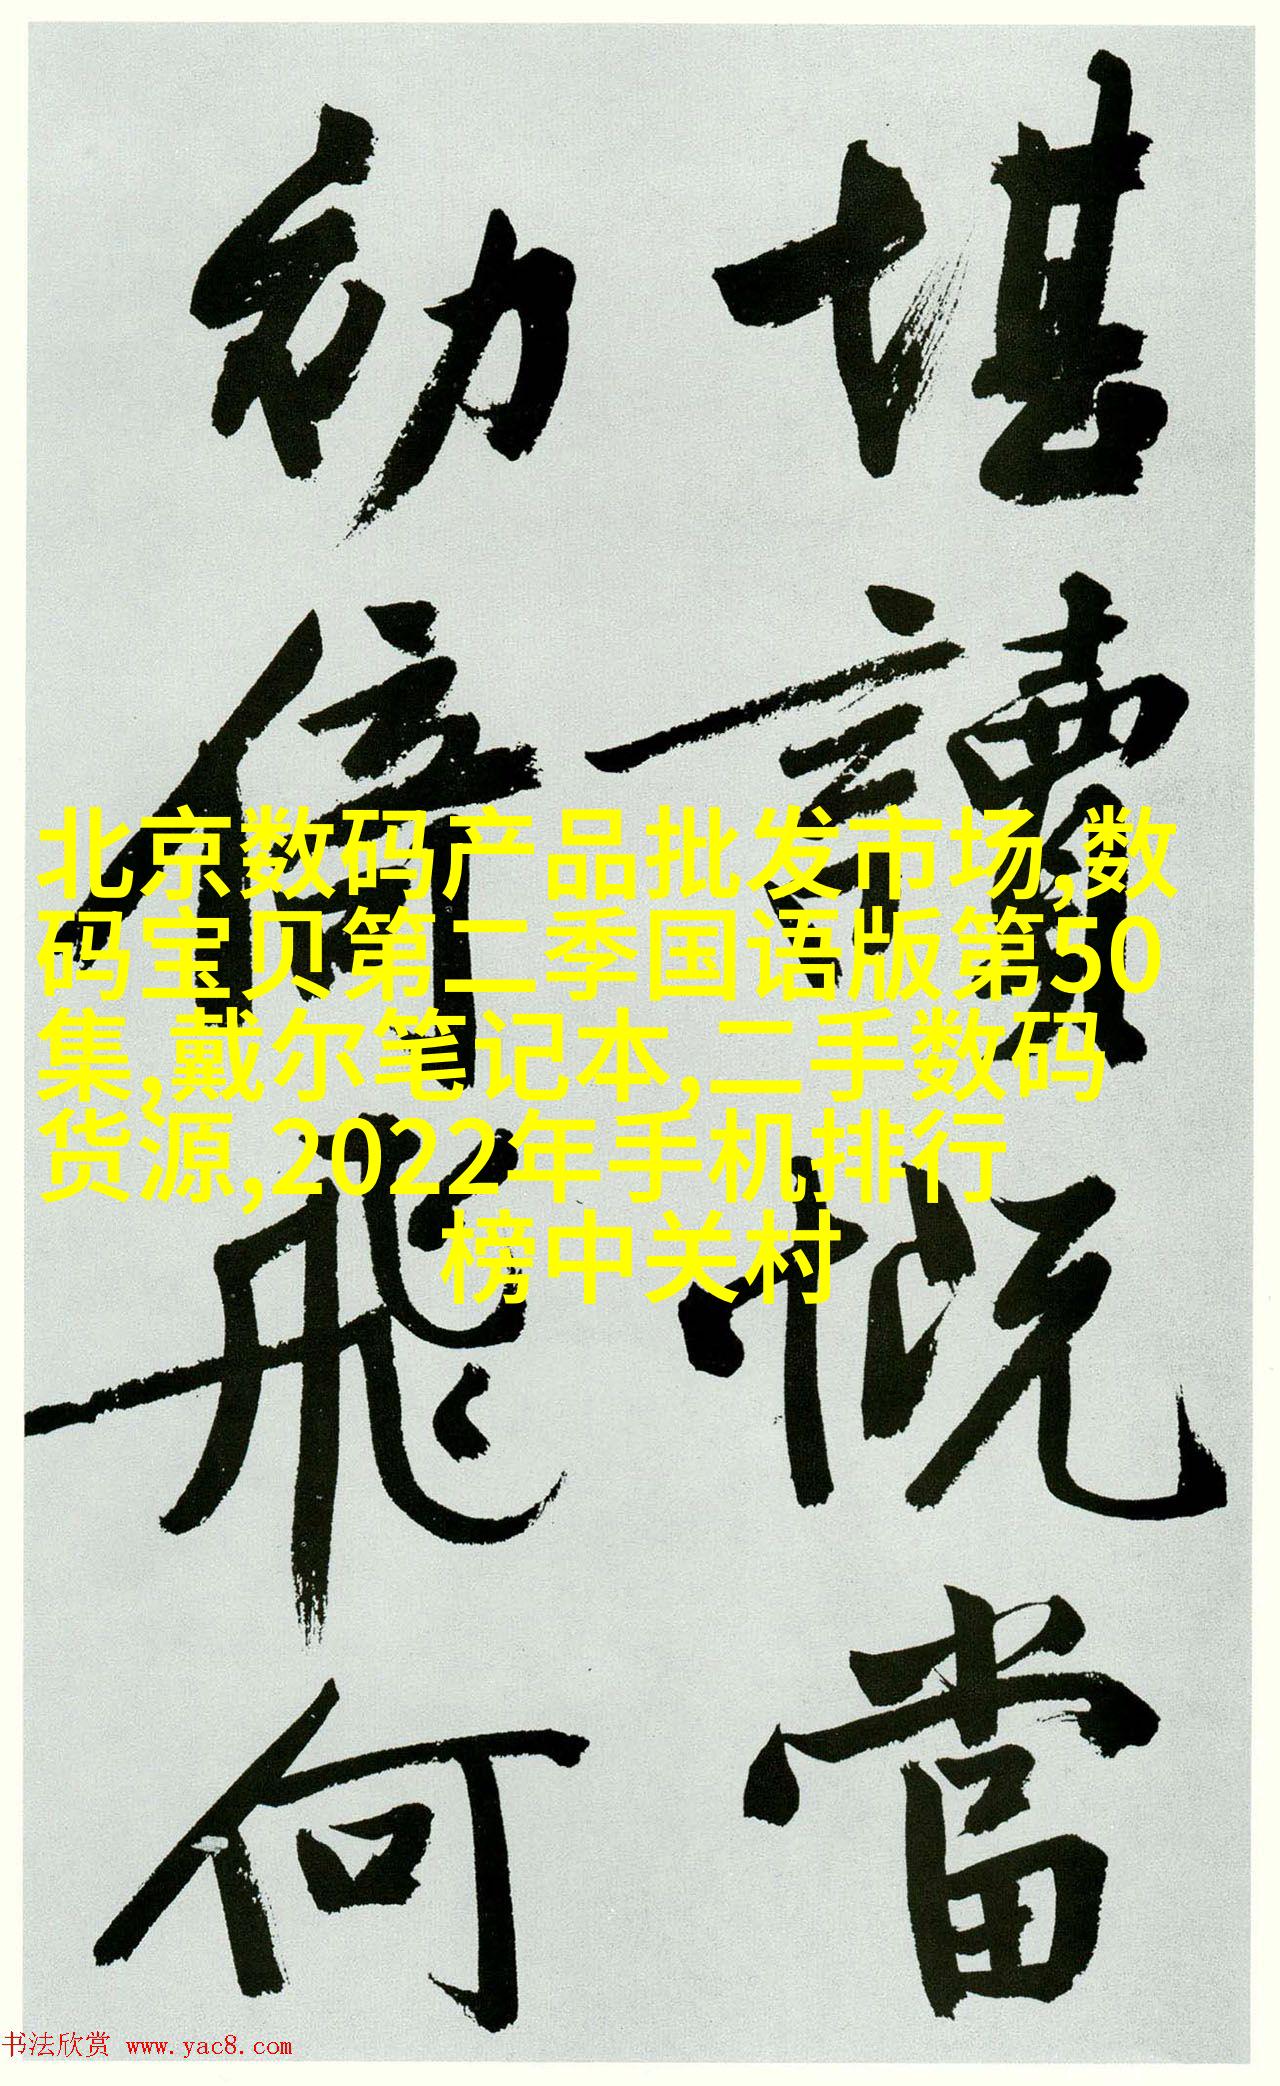 堪讀慨當
幼倚飛何
北京数码产品批发市场,数
码宝贝第二季国语版第50
集,戴尔笔记本,二手数码
货源,2022年手机排行
榜中关村
书法欣赏 www.yac8.com